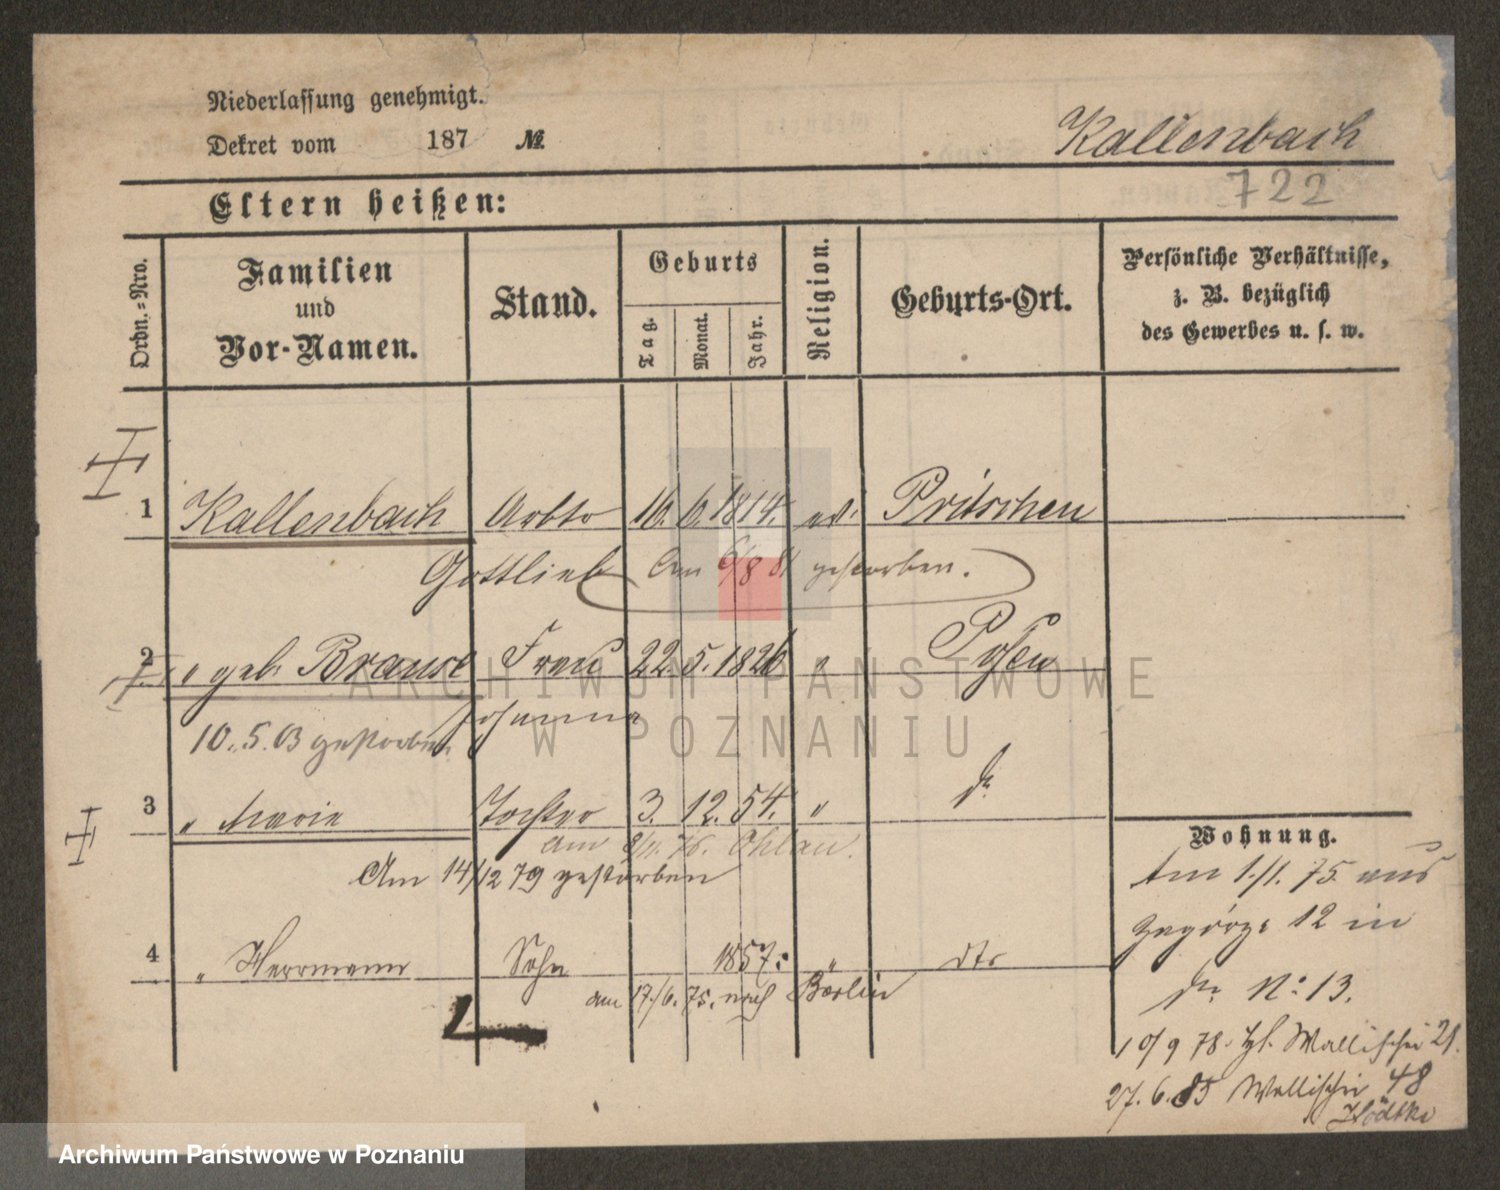 Niederlassung genehmigt.
Dekret vom 187 №
Kallenbach
722
Eltern heißen:
Ordn.=Nro.
Familien
und
Vor-Namen.
Stand.
Geburts
Tag.
Monat.
Jahr.
Religion.
Geburts-Ort.
Persönliche Verhältnisse,
z. B. bezüglich
des Gewerbes u. s. w.
1 Kallenbach Arbtr 16. 6. 1814. ev. Pritschen
Gottlieb Am 6/8 81 gestorben.
2 " geb. Brause Frau 22. 5. 1826 " Posen
Johanna
10. 5. 03 gestorben
3 " Marie Tochter 3. 12. 54. " do
am 8/11. 76. Ohlau.
Am 14/12 79 gestorben
4 " Herrmann Sohn 1857. " dto
am 17./6. 75. nach Berlin
Wohnung.
Am 1./1. 75. aus
Zagórze 12 in
do No. 13.
10/9 78. Wallischei 21.
27. 6. 85 Wallischei 48
ARCHIWUM PAŃSTWOWE
W POZNANIU
Archiwum Państwowe w Poznaniu